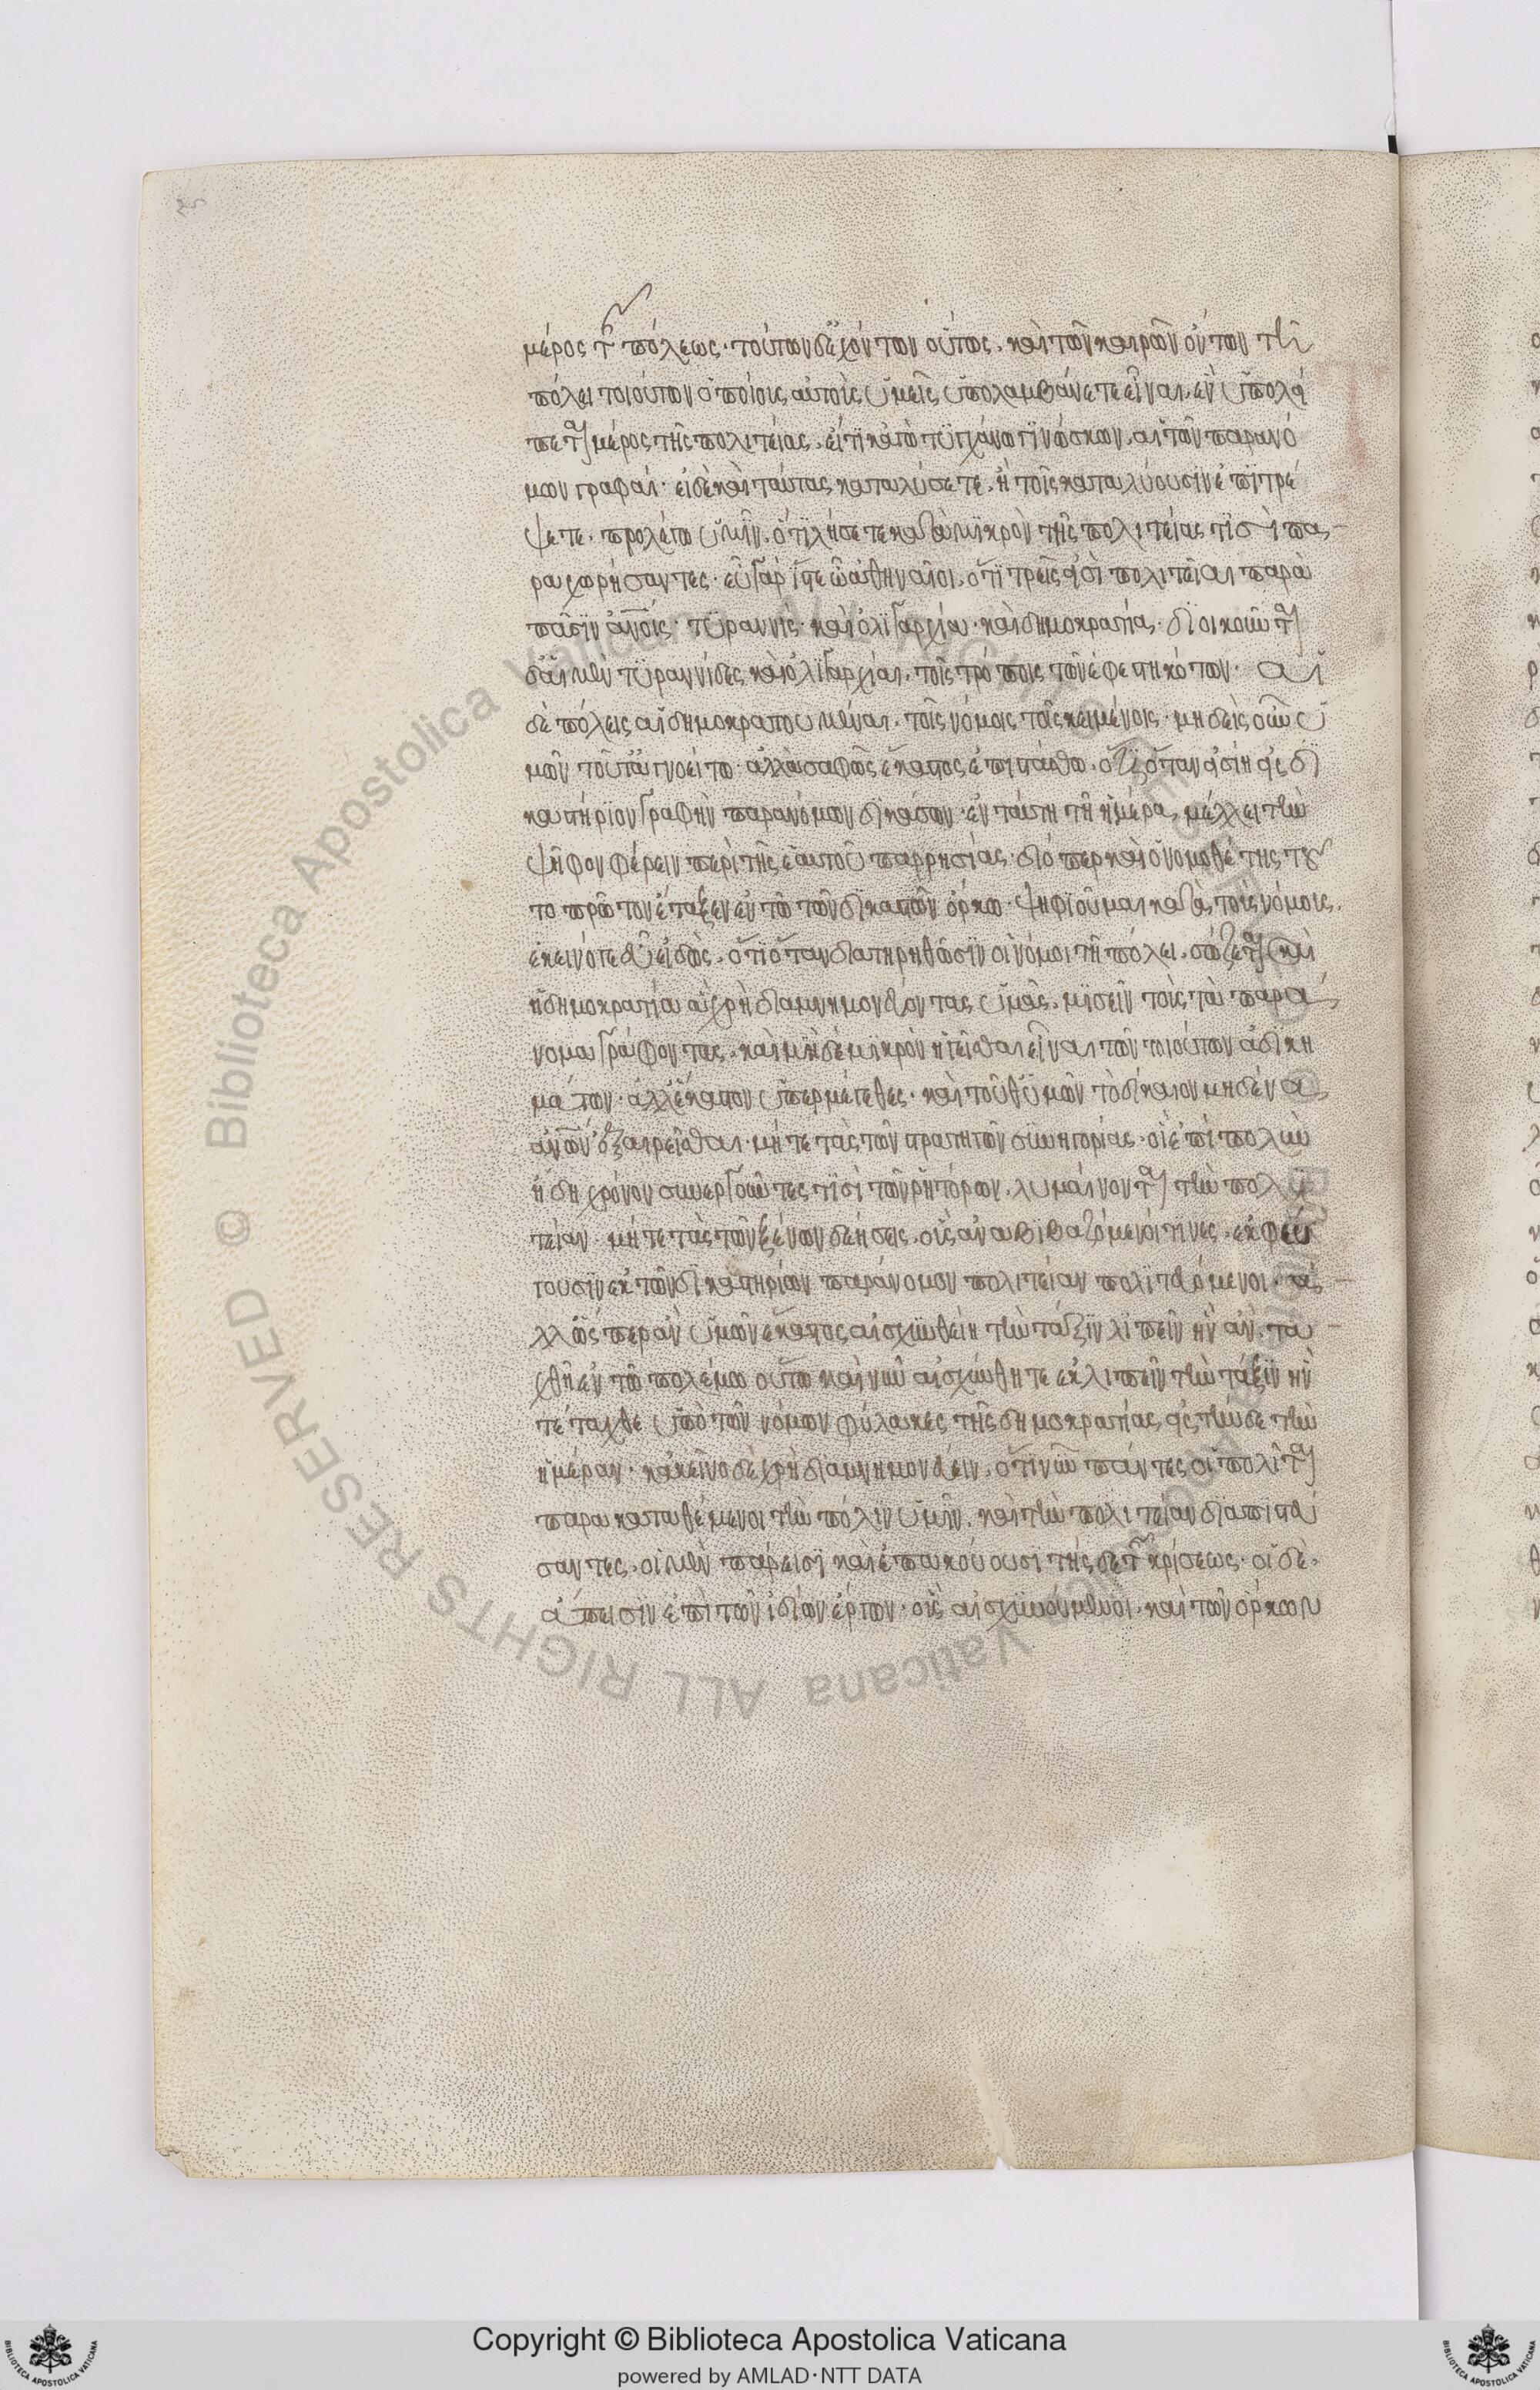 μέρος τῆς πόλεως· τούτων δ' ἐχόντων οὕτως. καὶ τῶν καιρῶν ὄντων τῆ
πόλει τοιούτων ὁποίους αὐτοὺς ὑμεῖς ὑπολαμβάνετε εἶναι. ἓν ὑπολεί
πεται μέρος τῆς πολιτείας. εἴ τι κἀγὼ τυγχάνω γινώσκων. αἱ τῶν παρανό
μων γραφαί· εἰ δὲ καὶ ταύτας καταλύσετε. ἢ τοῖς καταλύουσιν ἐπιτρέ
ψετε. προλέγω ὑμῖν. ὅτι λήσετε κατὰ μικρὸν τῆς πολιτείας τισὶ πα
ραχωρήσαντες· εὖ γὰρ ἴστε ὦ ἀθηναῖοι. ὅτι τρεῖς εἰσὶ πολιτεῖαι παρὰ
πᾶσιν ἀνοις· τυραννὶς· καὶ ὀλιγαρχία· καὶ δημοκρατία· διοικοῦνται
δ' αἱ μὲν τυραννίδες καὶ ὀλιγαρχίαι. τοῖς τρόποις τῶν ἐφεστηκότων· αἱ
δὲ πόλεις αἱ δημοκρατούμεναι. τοῖς νόμοις τοῖς κειμένοις· μηδεὶς οὖν ὑ
μῶν τοῦτ' ἀγνοείτω· ἀλλὰ σαφῶς ἕκαστος ἐπιστάσθω. ὅτι ὅταν εἰσίῃ εἰς δι
καστήριον γραφὴν παρανόμων δικάσων· ἐν ταύτη τῆ ἡμέρα μέλλει τὴν
ψῆφον φέρειν περὶ τῆς ἑαυτοῦ παρρησίας· διόπερ καὶ ὁ νομοθέτης τοῦ
το πρῶτον ἔταξεν ἐν τῶ τῶν δικαστῶν ὅρκω· ψηφιοῦμαι κατὰ τοὺς νόμους.
ἐκεῖνό γε εὖ εἰδὼς. ὅτι ὅταν διατηρηθῶσιν οἱ νόμοι τῆ πόλει. σώζεται καὶ
ἡ δημοκρατία ἃ χρὴ διαμνημονεύοντας ὑμᾶς. μισεῖν τοὺς τὰ παρά
νομα γράφοντας. καὶ μηδὲ μικρὸν ἡγεῖσθαι εἶναι τῶν τοιούτων ἀδικη
μάτων· ἀλλ' ἕκαστον ὑπερμέγεθες· καὶ τοῦθ' ὑμῶν τὸ δίκαιον μηδένα
ἀνων ἐξαιρεῖσθαι· μήτε τὰς τῶν στρατηγῶν συνηγορίας· οἳ ἐπὶ πολὺν
ἤδη χρόνον συνεργοῦντές τισὶ τῶν ῥητόρων. λυμαίνονται τὴν πολι
τείαν· μήτε τὰς τῶν ξένων δεήσεις. οὓς ἀναβιβαζόμενοί τινες. ἐκφεύ
γουσιν ἐκ τῶν δικαστηρίων παράνομον πολιτείαν πολιτευόμενοι· ἀ
λλ' ὥσπερ ἂν ὑμῶν ἕκαστος αἰσχυνθείη τὴν τάξιν λιπεῖν ἣν ἂν τα
χθῆ ἐν τῶ πολέμω οὕτω καὶ νῦν αἰσχύνθητε ἐκλιπεῖν τὴν τάξιν ἣν
τέταχθε ὑπὸ τῶν νόμων φύλακες τῆς δημοκρατίας εἰς τήνδε τὴν
ἡμέραν· κἀκεῖνο δὲ χρὴ διαμνημονεύειν. ὅτι νῦν πάντες οἱ πολῖται
παρακαταθέμενοι τὴν πόλιν ὑμῖν. καὶ τὴν πολιτείαν διαπιστεύ
σαντες. οἱ μὲν πάρεισι καὶ ἐπακούουσι τῆσδε τῆς κρίσεως· οἱ δὲ.
ἄπεισιν ἐπὶ τῶν ἰδίων ἔργων· οὓς αἰσχυνόμενοι. καὶ τῶν ὅρκων
Copyright © Biblioteca Apostolica Vaticana
powered by AMLAD·NTT DATA